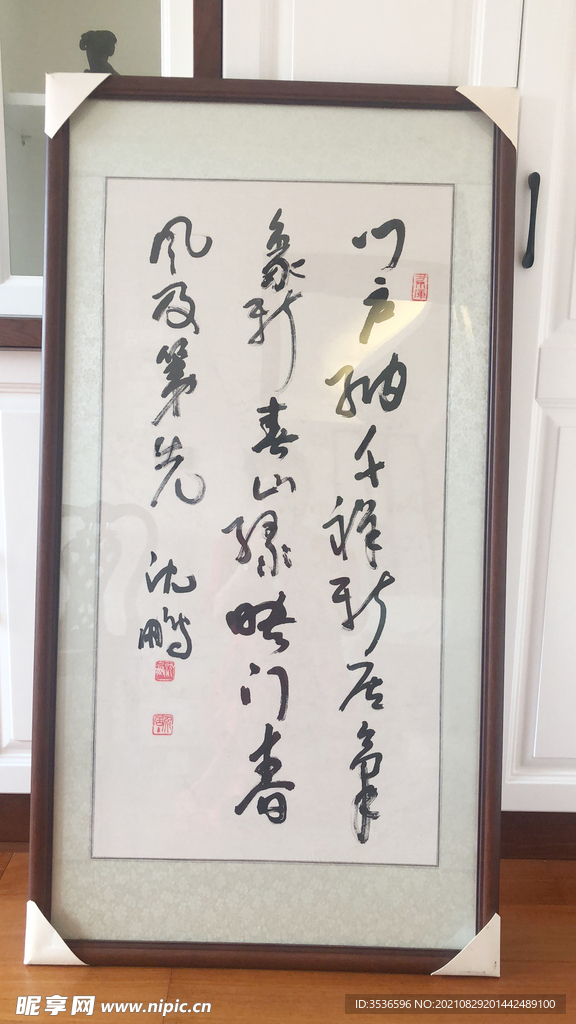 门户纳千祥新居气
象新春山绿映门春
风及第先
沈鹏
昵享网 www.nipic.cn
ID:3536596 NO:20210829201442489100